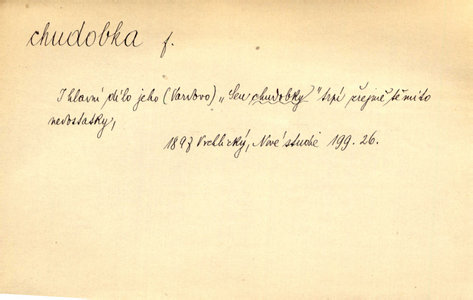 chudobka f.
I hlavní dílo jeho (Vandovo) „Sen chudobky" trpí zřejmě těmito
nedostatky,
1897 Vrchlický, Nové studie 199. 26.